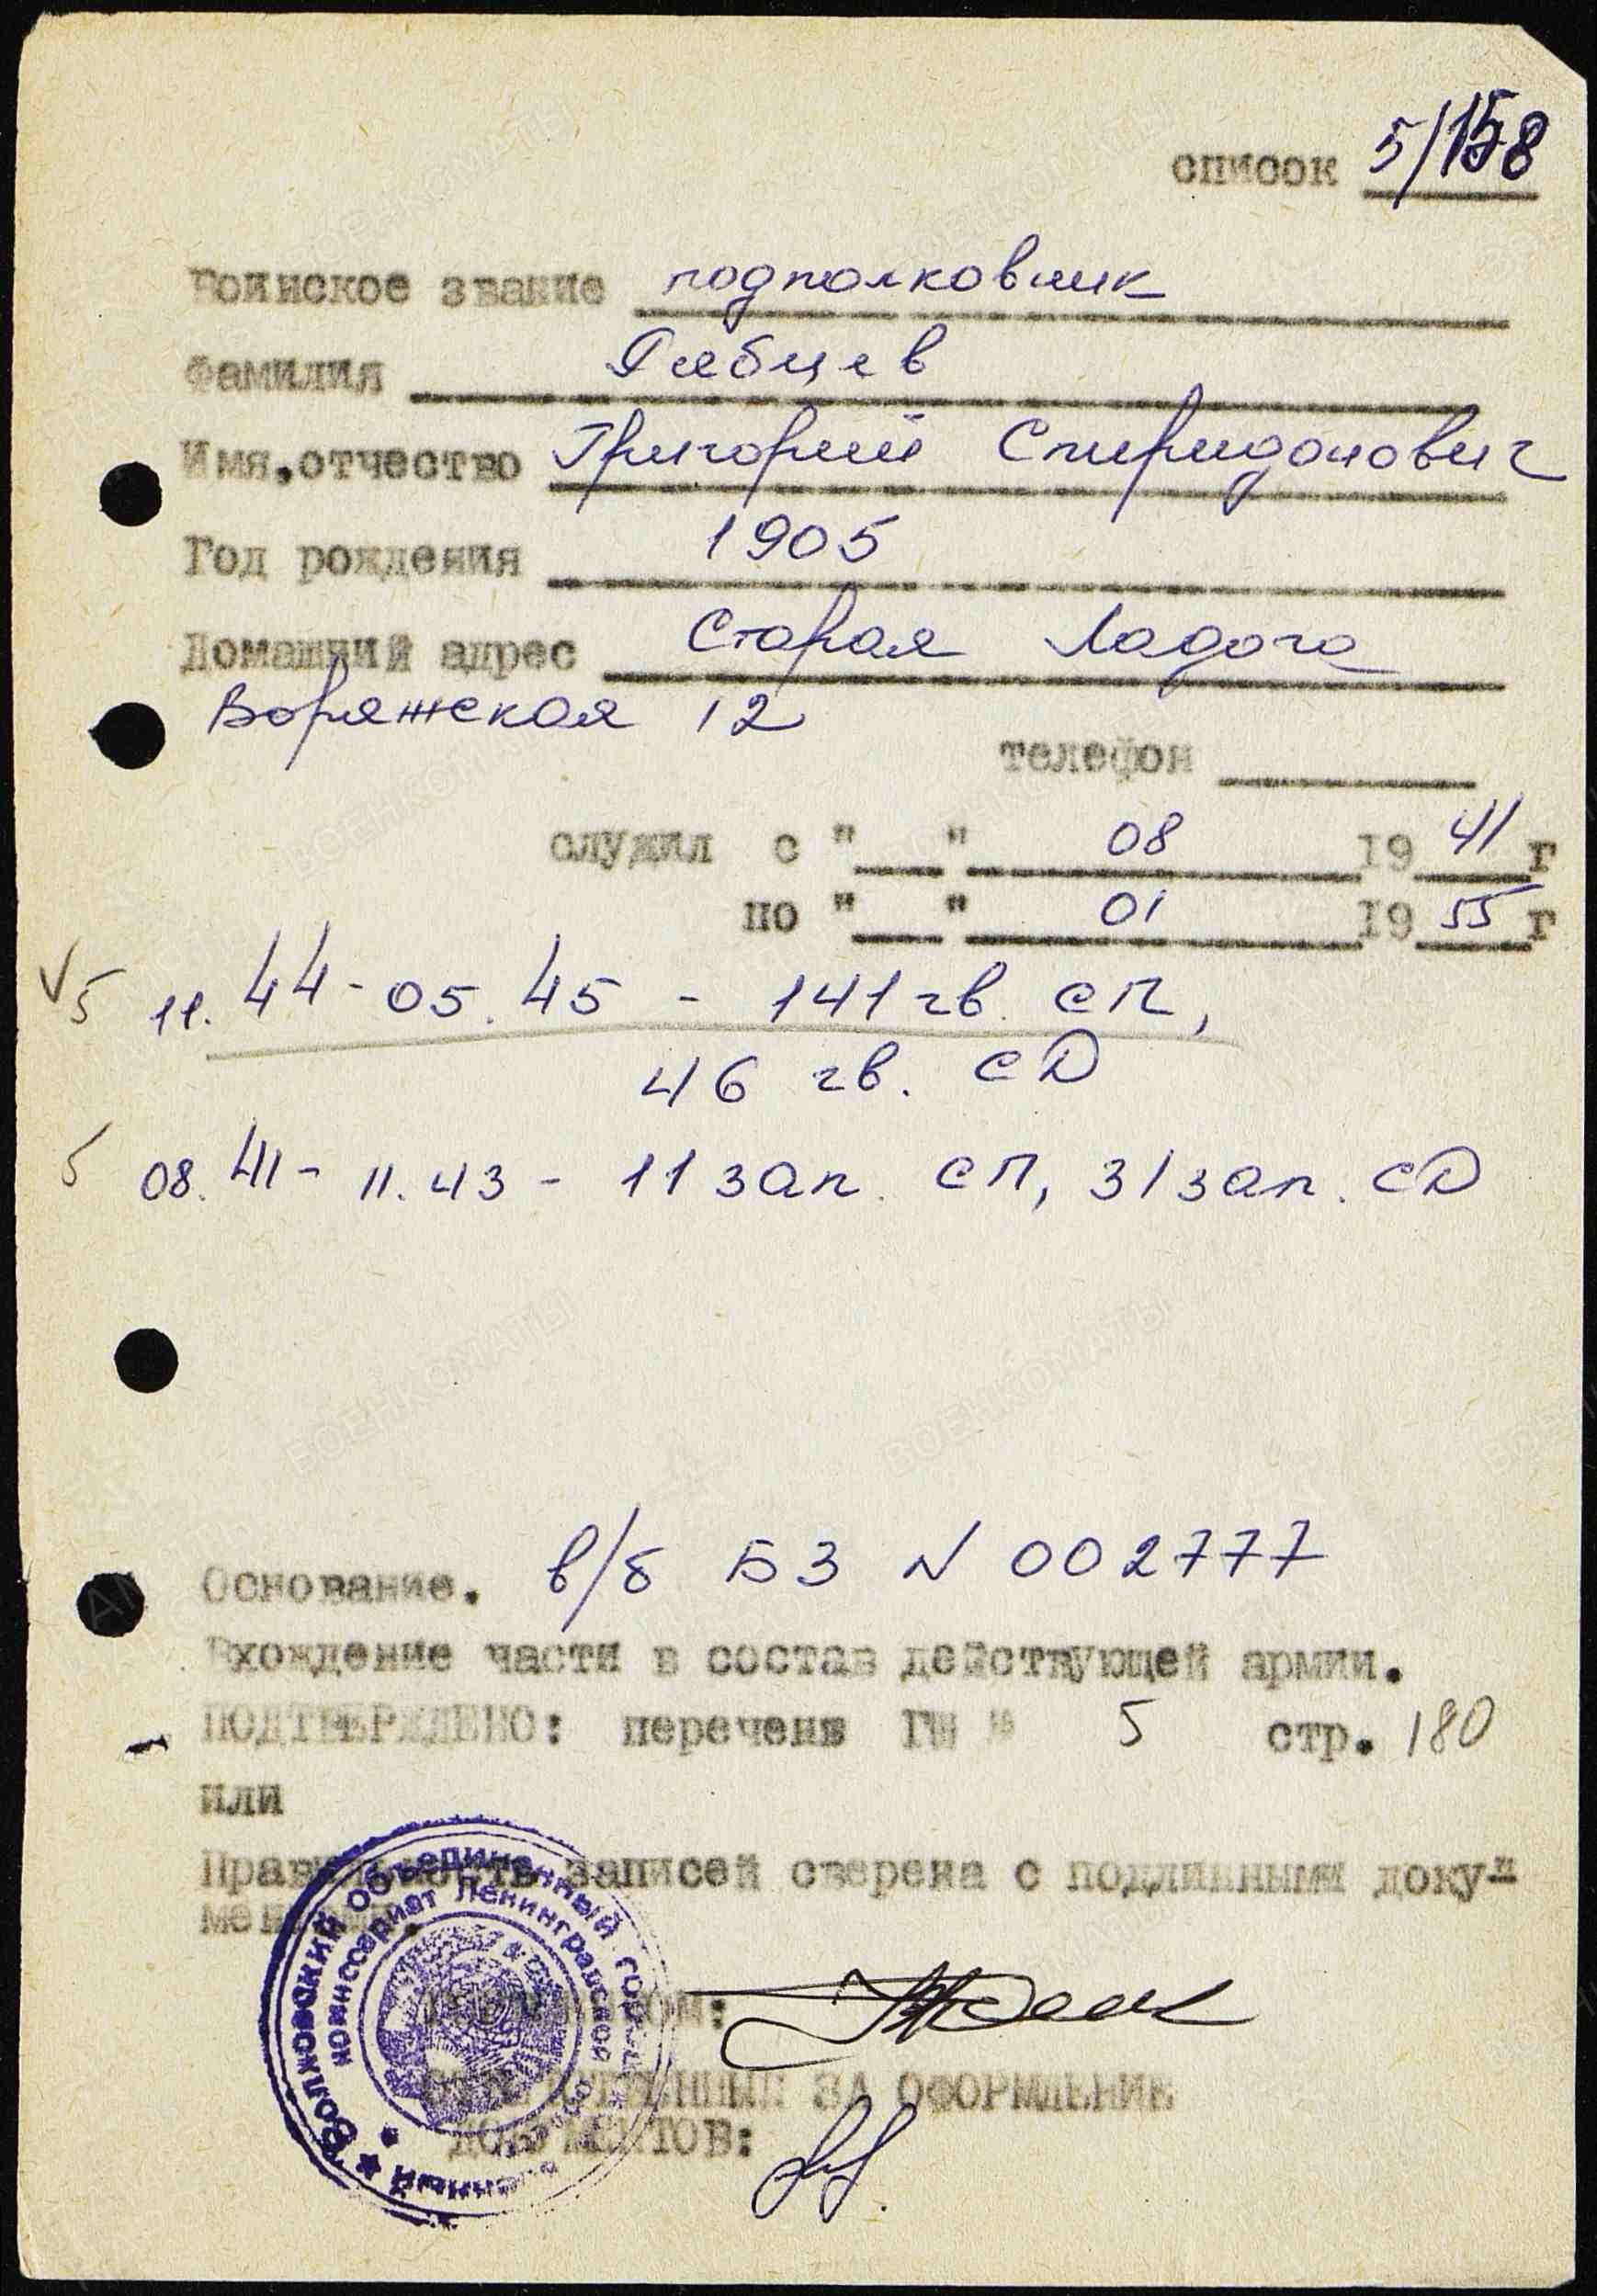 список 5/158
Воинское звание подполковник
Фамилия Рябцев
Имя, отчество Григорий Спиридонович
Год рождения 1905
Домашний адрес Старая Ладога
Воряжская 12
телефон
служил с " " 08 1941 г
по " " 01 1955 г
√ 5 11.44 - 05.45 - 141 гв. СП,
46 гв. СД
5 08.41 - 11.43 - 11 зап. СП, 31 зап. СД
Основание. в/б БЗ N 002777
Вхождение части в состав действующей армии.
ПОДТВЕРЖДЕНО: перечень ГШ № 5 стр. 180
или
Правильность записей сверена с подлинными доку-
ментами.
ВОЕНКОМ:
ЗА ОФОРМЛЕНИЕ
ДОКУМЕНТОВ:
Волховский объединенный гор
комиссариат Ленинградской
ВОЕНКОМАТЫ